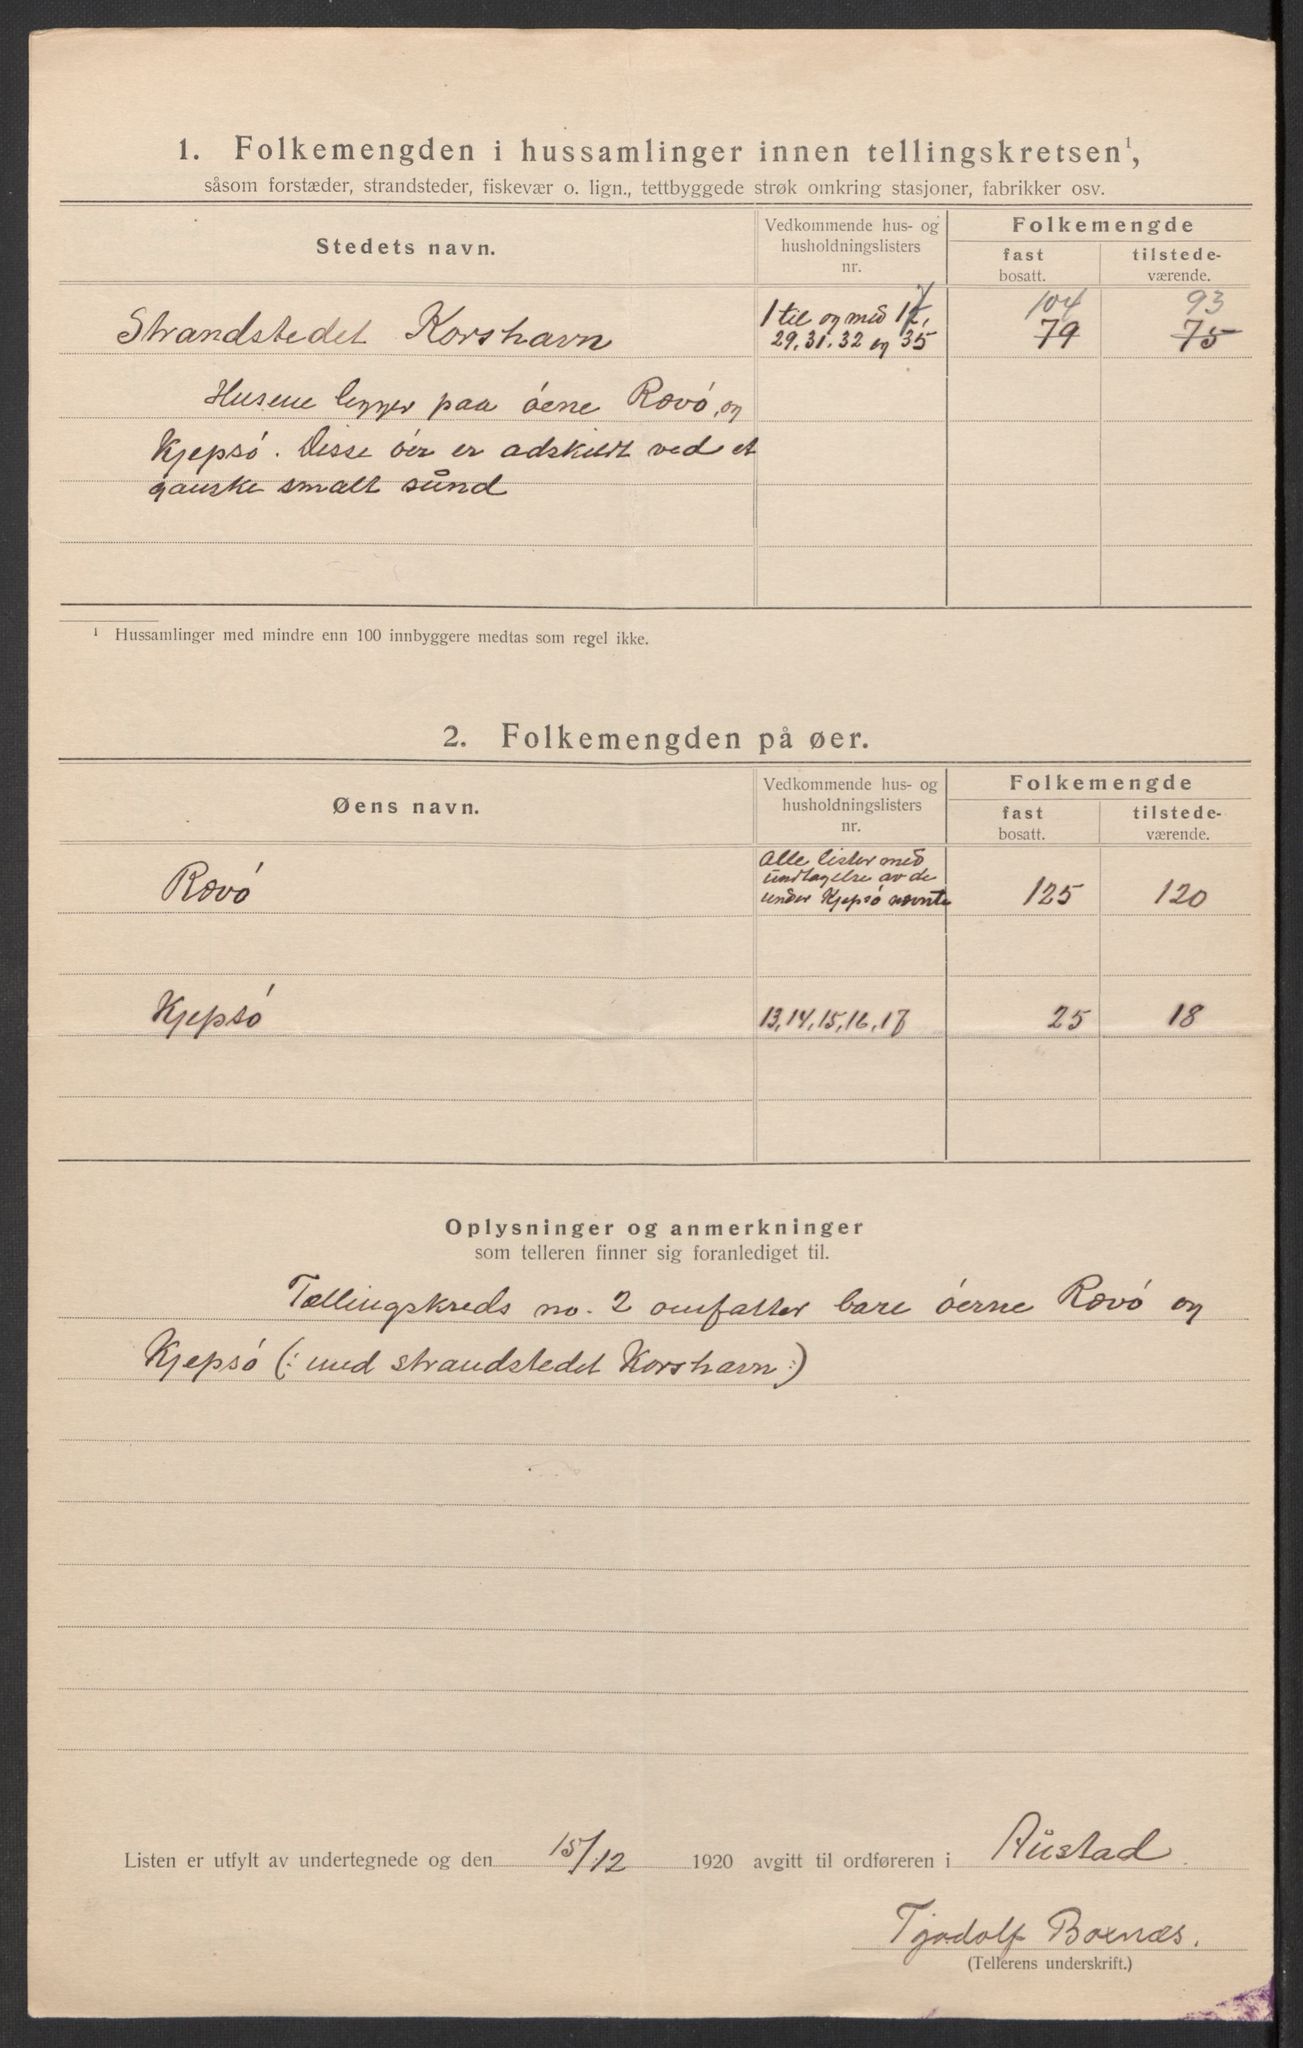 1. Folkemengden i hussamlinger innen tellingskretsen¹,
såsom forstæder, strandsteder, fiskevær o. lign., tettbyggede strøk omkring stasjoner, fabrikker osv.
Stedets navn.
Vedkommende hus- og
husholdningslisters
nr.
Folkemengde
fast
bosatt.
tilstede-
værende.
104 93
Strandstedet Korshavn 1 til og med 17, 79 75
29, 31, 32 og 35
Husene legger paa óene Rævó, og
Kjepsó. Disse óer er adskildt ved et
ganske smalt sund
¹ Hussamlinger med mindre enn 100 innbyggere medtas som regel ikke.
2. Folkemengden på øer.
Øens navn.
Vedkommende hus- og
husholdningslisters
nr.
Folkemengde
fast
bosatt.
tilstede-
værende.
Alle lister med
undtagelse av de
Rævó under Kjepsó nævnte 125 120
Kjepsó 13, 14, 15, 16, 17 25 18
Oplysninger og anmerkninger
som telleren finner sig foranlediget til.
Tællingskreds no. 2 omfatter bare óerne Rævó og
Kjepsó (: med strandstedet Korshavn :)
Listen er utfylt av undertegnede og den 15/12 1920 avgitt til ordføreren i Austad
Tjodolf Boxnæs.
(Tellerens underskrift.)